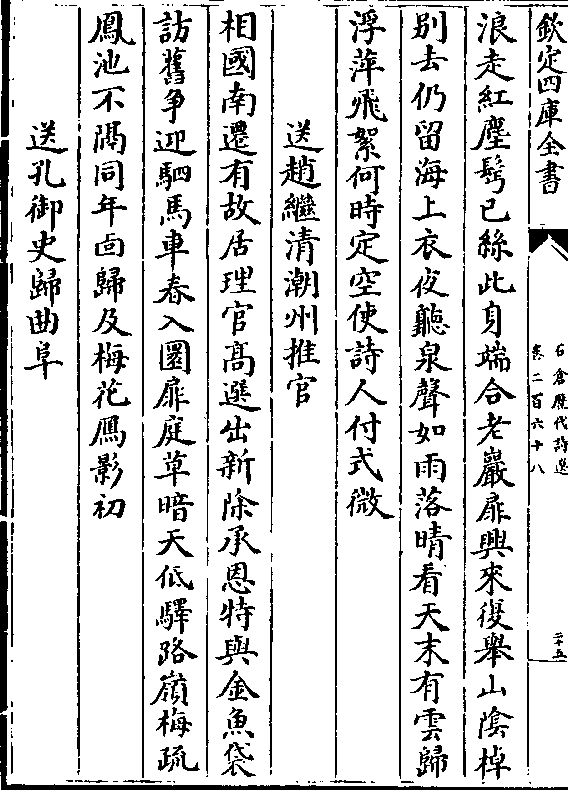 欽定四庫全書
石倉歷代詩選
卷二百六十八
二十五
浪走紅塵鬂已絲此身端合老巖扉興來復舉山陰棹
别去仍留海上衣夜聽泉聲如雨落晴看天末有雲歸
浮萍飛絮何時定空使詩人付式微
送趙繼清潮州推官
相國南遷有故居理官髙選出新除承恩特與金魚袋
訪舊爭迎駟馬車春入圜扉庭草暗天低驛路嶺梅疏
鳳池不隔同年面歸及梅花鴈影初
送孔御史歸曲阜